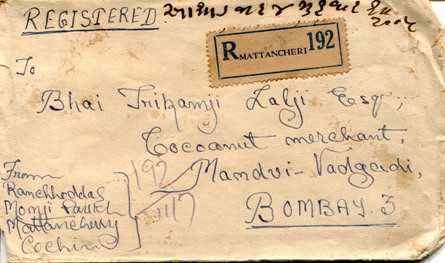 REGISTERED
R MATTANCHERI 192
To
Bhai Trikamji Lalji Esq.,
Cocoanut merchant,
Mandvi-Vadgadi,
BOMBAY. 3
From
Ranchhoddas
Moorji
Mattancherry
Cochin
192